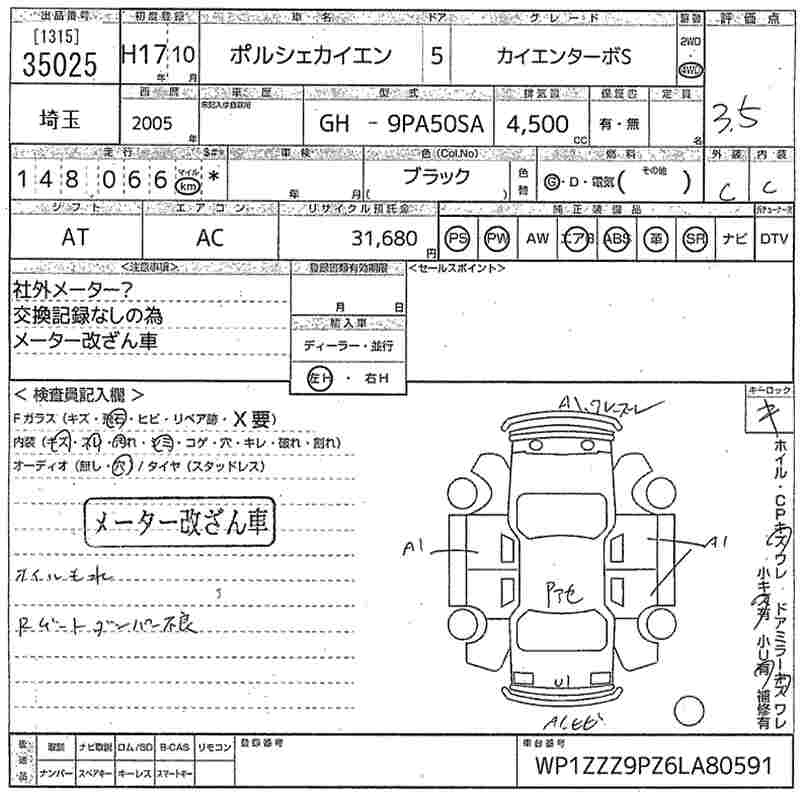 出品番号 初度登録 車名 ドア グレード 駆動 評価点
[1315]
35025 H17年 10月 ポルシェカイエン 5 カイエンターボS 2WD 4WD 3.5
西暦 車歴 型式 排気量 保証書 定員
埼玉 2005年 GH - 9PA50SA 4,500cc 有・無 名
走行 車検 色(Col.No) 燃料 外装 内装
148,066 マイル km * 年 月 ブラック ( ) 色替 G・D・電気 ( その他 ) C C
シフト エアコン リサイクル預託金 純正装備品
AT AC 31,680円 PS PW AW エアB ABS 革 SR ナビ DTV
<注意事項> 登録書類有効期限 <セールスポイント>
社外メーター? 月 日
交換記録なしの為 輸入車
メーター改ざん車 ディーラー・並行
左H・右H
< 検査員記入欄 > キーロック
キ
Fガラス (キズ・飛石・ヒビ・リペア跡・X要)
内装 (キズ・スレ・汚れ・シミ・コゲ・穴・キレ・破れ・割れ)
オーディオ (無し・穴) / タイヤ (スタッドレス)
メーター改ざん車
オイルもれ
Rゲートダンパー不良
A1
A1 A1
Pアセ
U1
A1ヒビ
ホイル・CPキズワレ ドアミラーキズワレ
小キズ有 小U有 補修有
後送品 取説 ナビ取説 ロム/SD B-CAS リモコン 登録番号 車台番号
ナンバー スペアキー キーレス スマートキー WP1ZZZ9PZ6LA80591